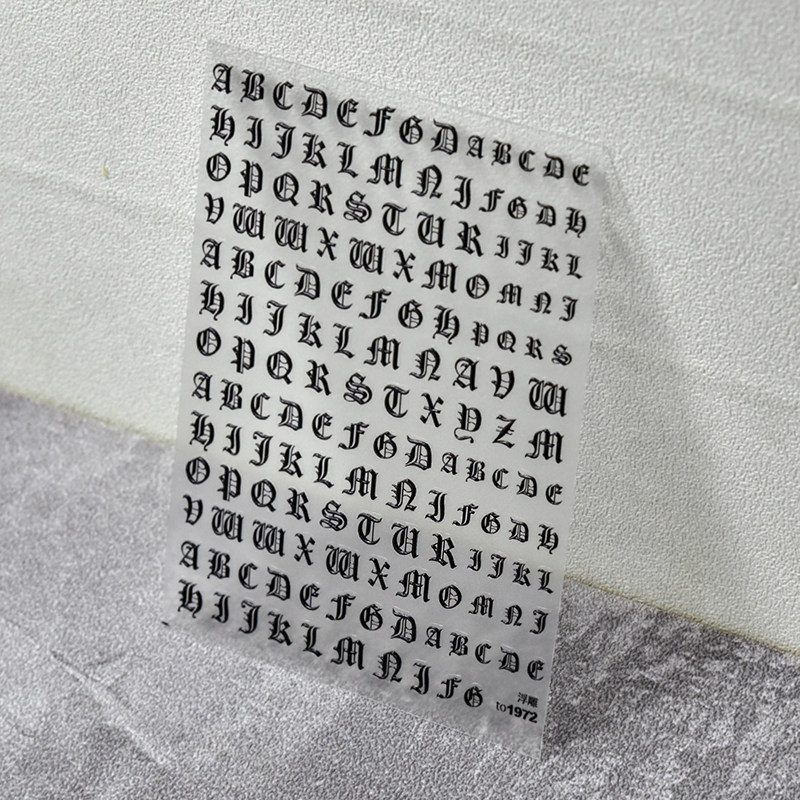 A B C D E F G D A B C D E
H I J K L M N J F G D H
O P Q R S T U R I J K L
V W W X W X M O M N J
A B C D E F G H P Q R S
H I J K L M N A V W
O P Q R S T X Y Z M
A B C D E F G D A B C D E
H I J K L M N J F G D H
O P Q R S T U R I J K L
V W W X W X M O M N J
A B C D E F G D A B C D E
H I J K L M N J F G
浮雕
to1972